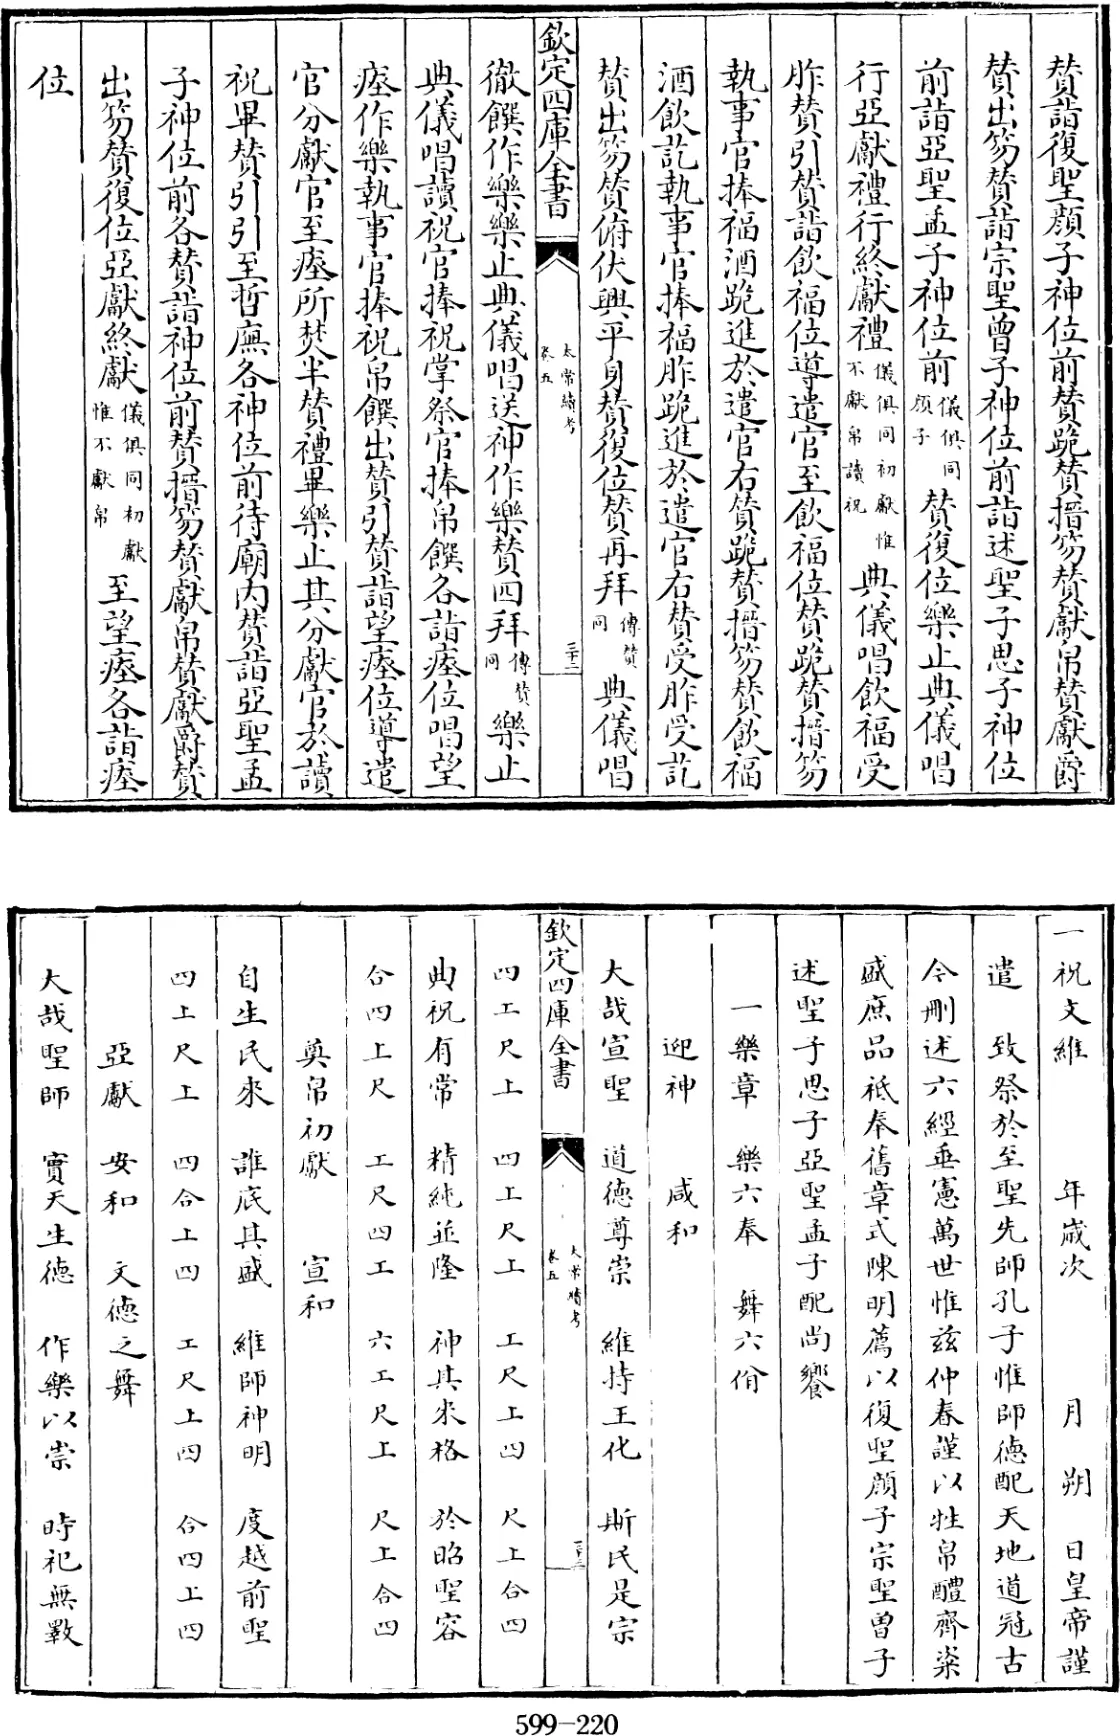 賛詣復聖顔子神位前賛跪賛搢笏賛獻帛賛獻爵
賛出笏賛詣宗聖曾子神位前詣述聖子思子神位
前詣亞聖孟子神位前儀俱同顔子賛復位樂止典儀唱
行亞獻禮行終獻禮儀俱同初獻惟不獻帛讀祝典儀唱飲福受
胙賛引賛詣飲福位導遣官至飲福位賛跪賛搢笏
執事官捧福酒跪進於遣官右賛跪賛搢笏賛飲福
酒飲訖執事官捧福胙跪進於遣官右賛受胙受訖
賛出笏賛俯伏興平身賛復位賛再拜傳賛同典儀唱
欽定四庫全書
太常續考
卷五
三十二
徹饌作樂樂止典儀唱送神作樂賛四拜傳賛同樂止
典儀唱讀祝官捧祝掌祭官捧帛饌各詣瘞位唱望
瘞作樂執事官捧祝帛饌出賛引賛詣望瘞位導遣
官分獻官至瘞所焚半賛禮畢樂止其分獻官於讀
祝畢賛引引至哲廡各神位前待廟内賛詣亞聖孟
子神位前各賛詣神位前賛搢笏賛獻帛賛獻爵賛
出笏賛復位亞獻終獻儀俱同初獻惟不獻帛至望瘞各詣瘞
位
一祝文維 年歲次 月 朔 日皇帝謹
遣 致祭於至聖先師孔子惟師德配天地道冠古
今刪述六經垂憲萬世惟兹仲春謹以牲帛醴齊粢
盛庶品祗奉舊章式陳明薦以復聖顔子宗聖曾子
述聖子思子亞聖孟子配尚饗
一樂章 樂六奉 舞六佾
迎神 咸和
大哉宣聖 道德尊崇 維持王化 斯民是宗
欽定四庫全書
太常續考
卷五
三十三
四工尺上 四工尺上 工尺上四 尺上合四
典祀有常 精純並隆 神其來格 於昭聖容
合四上尺 工尺四工 六工尺工 尺上合四
奠帛初獻 宣和
自生民來 誰底其盛 維師神明 度越前聖
四上尺上 四合上四 工尺上四 合四上四
亞獻 安和 文德之舞
大哉聖師 實天生德 作樂以崇 時祀無斁
599-220